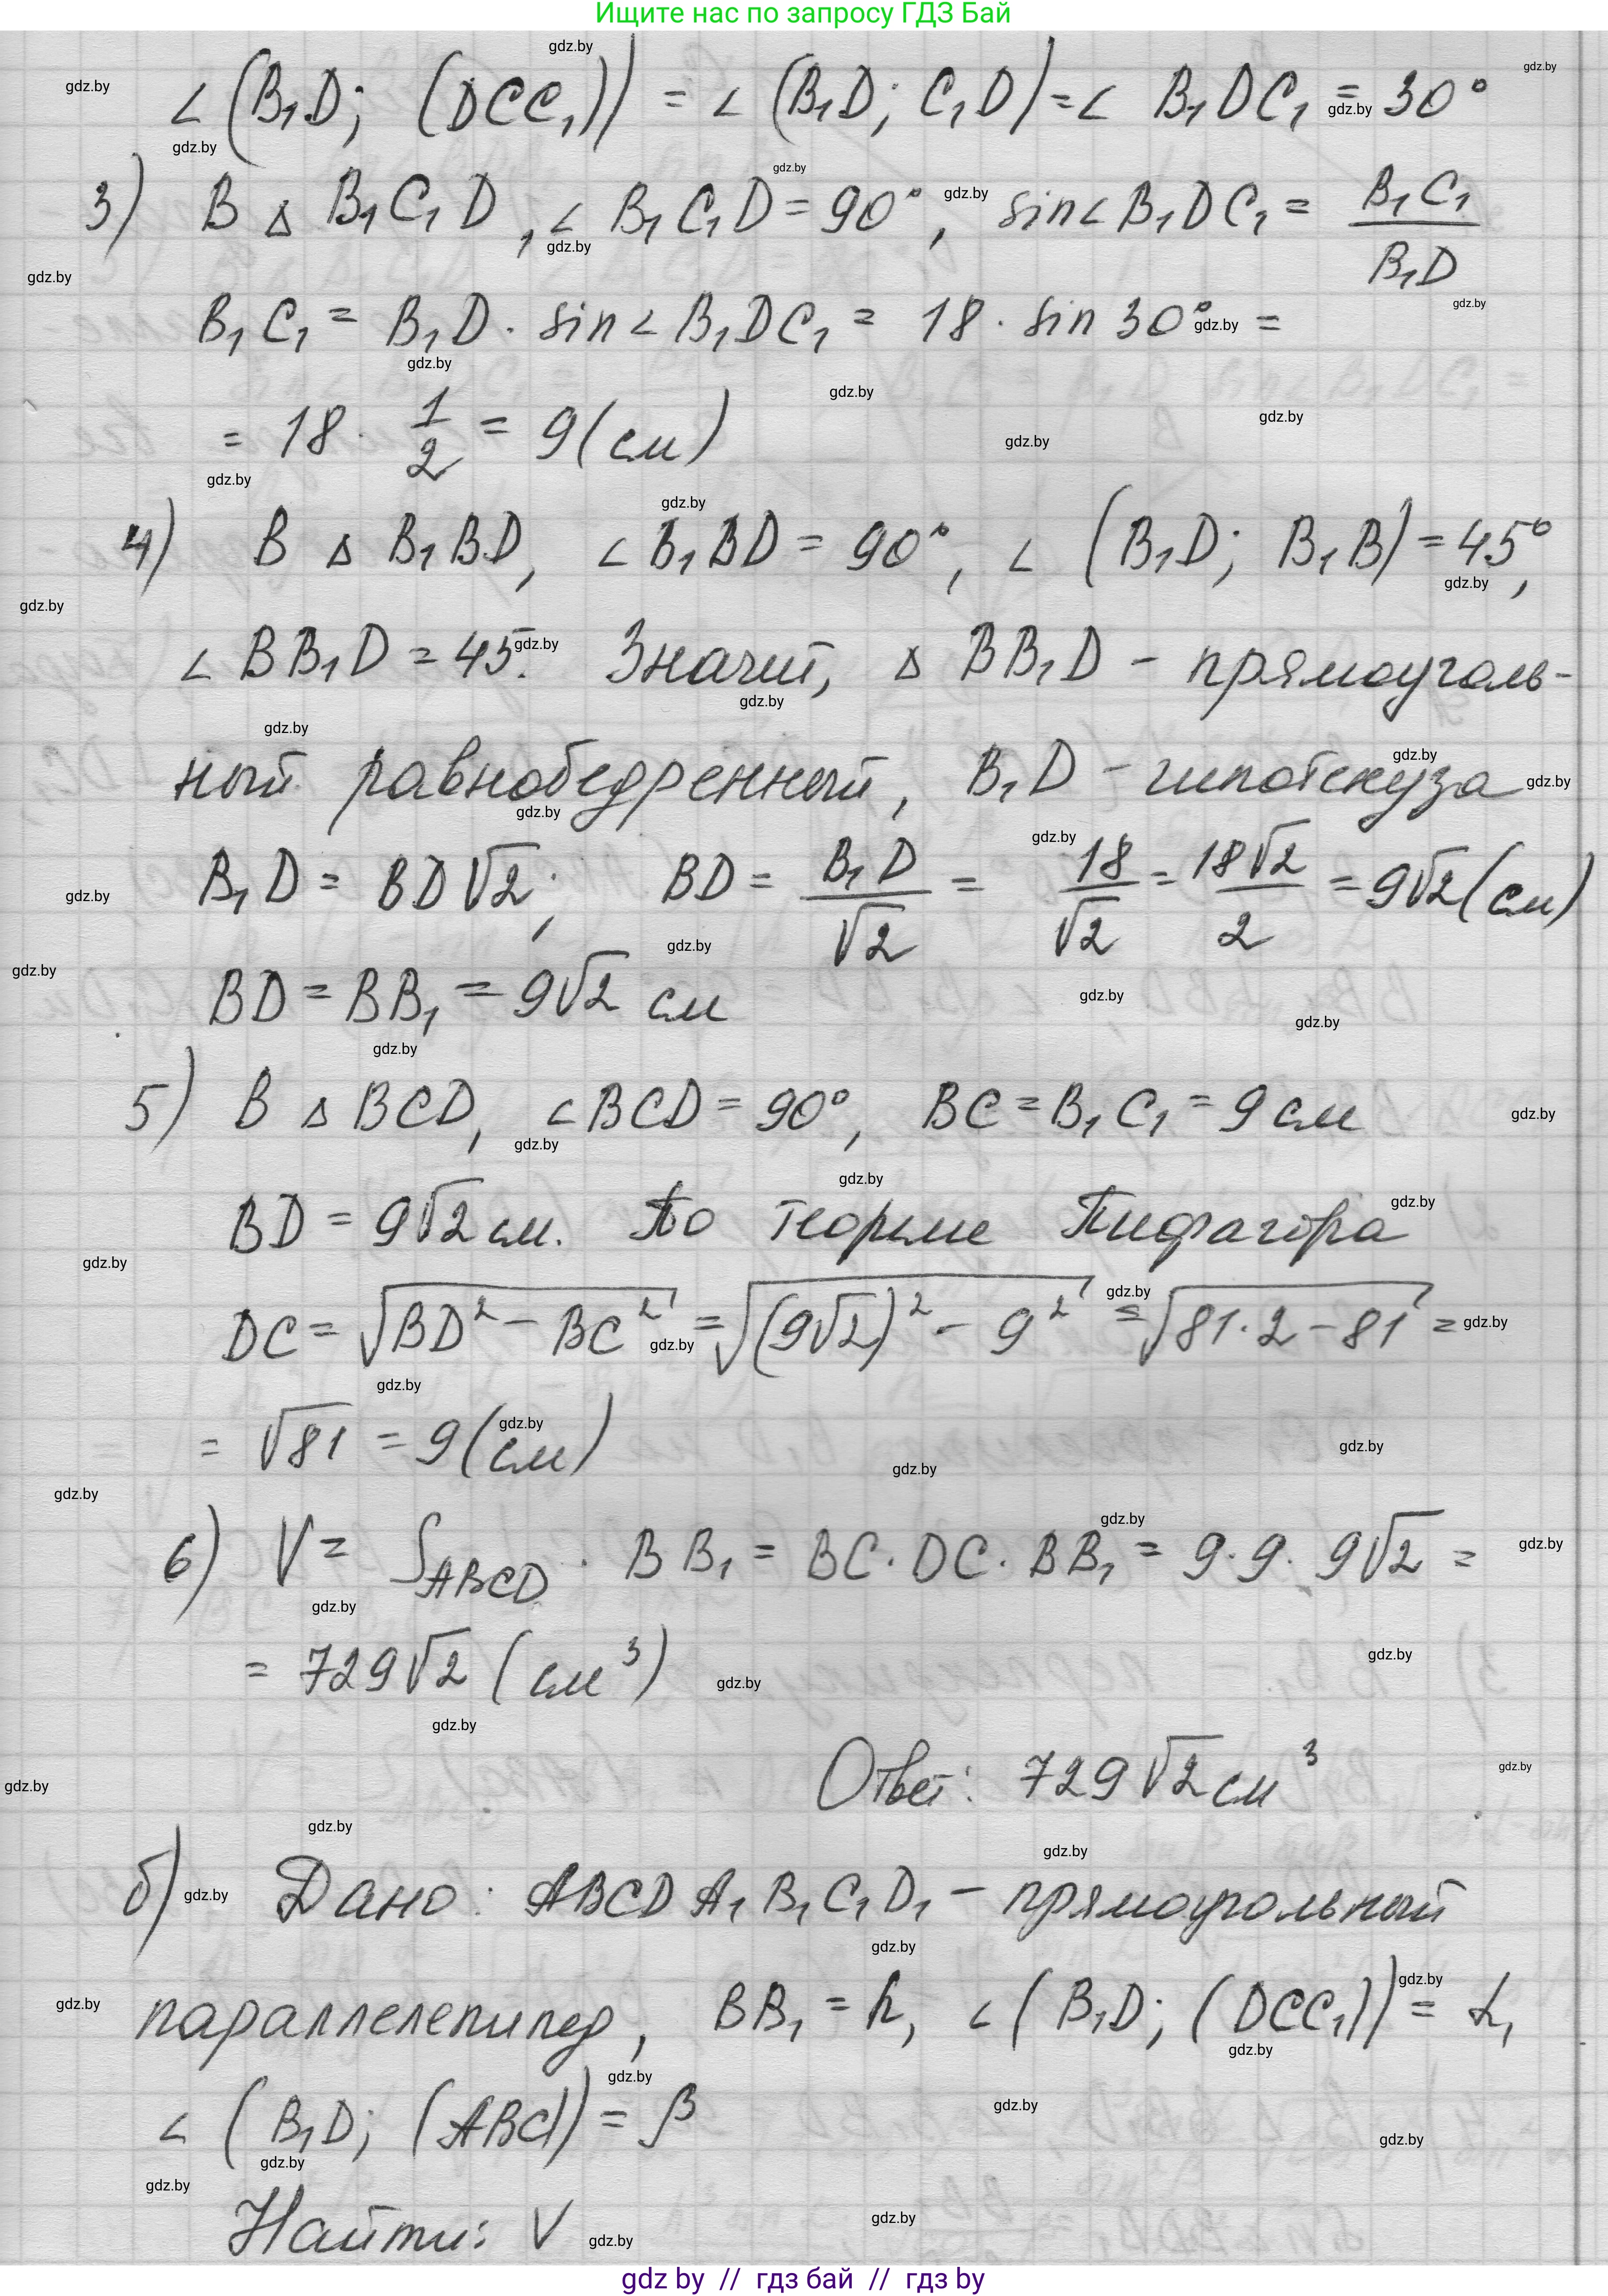 Ищите нас по запросу ГДЗ Бай
∠(B₁D; (DCC₁)) = ∠(B₁D; C₁D) = ∠ B₁DC₁ = 30°
3) В △ B₁C₁D, ∠ B₁C₁D = 90°, sin∠B₁DC₁ = B₁C₁/B₁D
B₁C₁ = B₁D · sin∠B₁DC₁ = 18 · sin 30° =
= 18 · 1/2 = 9 (см)
4) В △ B₁BD, ∠B₁BD = 90°, ∠ (B₁D; B₁B) = 45°,
∠ BB₁D = 45°. Значит, △ BB₁D - прямоуголь-
ный равнобедренный, B₁D - гипотенуза
B₁D = BD√2; BD = B₁D/√2 = 18/√2 = 18√2/2 = 9√2 (см)
BD = BB₁ = 9√2 см
5) В △ BCD, ∠BCD = 90°, BC = B₁C₁ = 9 см
BD = 9√2 см. По теореме Пифагора
DC = √(BD² - BC²) = √((9√2)² - 9²) = √(81·2 - 81) =
= √81 = 9 (см)
6) V = S_ABCD · BB₁ = BC · DC · BB₁ = 9·9·9√2 =
= 729√2 (см³)
Ответ: 729√2 см³
б) Дано: ABCDA₁B₁C₁D₁ - прямоугольный
параллелепипед, BB₁ = h, ∠(B₁D; (DCC₁)) = α,
∠ (B₁D; (ABC)) = β
Найти: V
gdz by // гдз бай // гдз by